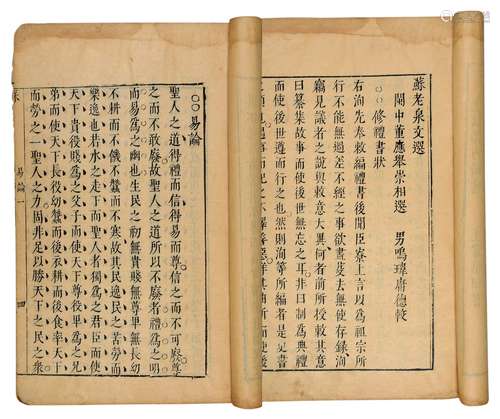 蘇老泉文選
閩中董應舉崇相選　男鳴瑋府德較
○○修禮書狀
右洵先奉敕編禮書後聞臣寮上言以爲祖宗所
行不能無過差不經之事欲盡芟去無使存錄洵
竊見議者之說與敕意大異何者前所授敕其意
曰纂集故事而使後世無忘之耳非曰制爲典禮
而使後世遵而行之也然則洵等所編者是史書
之類也遇事而記之不擇善惡詳其曲折而使後
○○易論
聖人之道得禮而信得易而尊信之而不可廢尊
之而不敢廢故聖人之道所以不廢者禮爲之明
而易爲之幽也生民之初無貴賤無尊卑無長幼
不耕而不饑不蠶而不寒故其民逸民之苦勞而
樂逸也若水之走下而聖人者獨爲之君臣而使
天下貴役賤爲之父子而使天下尊役卑爲之兄
弟而使天下長役幼蠶而後衣耕而後食率天下
而勞之一聖人之力固非足以勝天下之民之衆
易論一
四